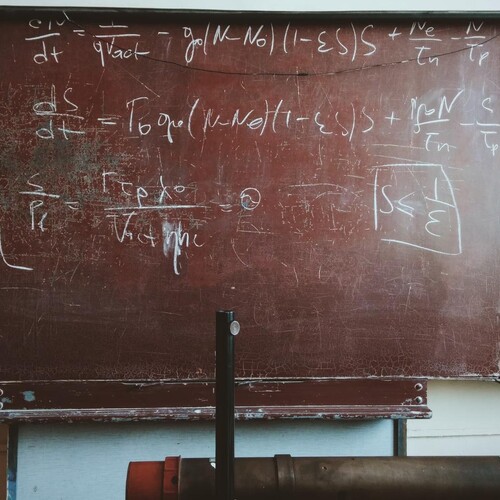 dN/dt = 1/qVact - g₀(N-N₀)(1-εS)S + Ne/τn - N/τp
dS/dt = Γ₀g₀(N-N₀)(1-εS)S + N/τn - S/τp
S/Pf = Γτpλ₀/Vact ηhc =
S ≤ 1/ε